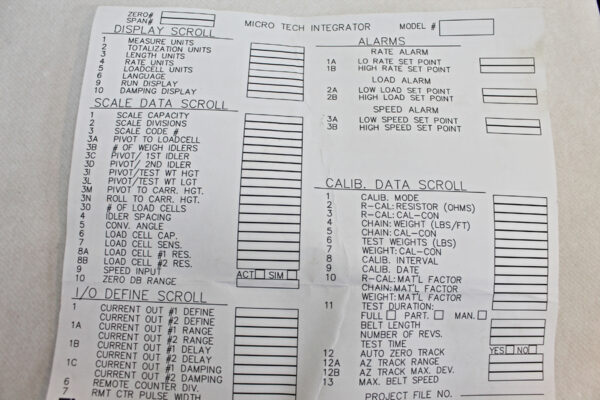 ZERO#
SPAN#
MICRO TECH INTEGRATOR MODEL #
DISPLAY SCROLL
1 MEASURE UNITS
2 TOTALIZATION UNITS
3 LENGTH UNITS
4 RATE UNITS
5 LOADCELL UNITS
6 LANGUAGE
9 RUN DISPLAY
10 DAMPING DISPLAY
SCALE DATA SCROLL
1 SCALE CAPACITY
2 SCALE DIVISIONS
3 SCALE CODE #
3A PIVOT TO LOADCELL
3B # OF WEIGH IDLERS
3C PIVOT/ 1ST IDLER
3D PIVOT/ 2ND IDLER
3I PIVOT/TEST WT HGT
3L PIVOT/TEST WT LGT
3M PIVOT TO CARR. HGT.
3N ROLL TO CARR. HGT.
30 # OF LOAD CELLS
4 IDLER SPACING
5 CONV. ANGLE
6 LOAD CELL CAP.
7 LOAD CELL SENS.
8A LOAD CELL #1 RES.
8B LOAD CELL #2 RES.
9 SPEED INPUT ACT SIM
10 ZERO DB RANGE
I/O DEFINE SCROLL
1 CURRENT OUT #1 DEFINE
CURRENT OUT #2 DEFINE
1A CURRENT OUT #1 RANGE
CURRENT OUT #2 RANGE
1B CURRENT OUT #1 DELAY
CURRENT OUT #2 DELAY
1C CURRENT OUT #1 DAMPING
CURRENT OUT #2 DAMPING
6 REMOTE COUNTER DIV.
7 RMT CTR PULSE WIDTH
ALARMS
RATE ALARM
1A LO RATE SET POINT
1B HIGH RATE SET POINT
LOAD ALARM
2A LOW LOAD SET POINT
2B HIGH LOAD SET POINT
SPEED ALARM
3A LOW SPEED SET POINT
3B HIGH SPEED SET POINT
CALIB. DATA SCROLL
1 CALIB. MODE
2 R-CAL: RESISTOR (OHMS)
3 R-CAL: CAL-CON
4 CHAIN: WEIGHT (LBS/FT)
5 CHAIN: CAL-CON
6 TEST WEIGHTS (LBS)
7 WEIGHT: CAL-CON
8 CALIB. INTERVAL
9 CALIB. DATE
10 R-CAL: MAT'L FACTOR
CHAIN: MAT'L FACTOR
WEIGHT: MAT'L FACTOR
11 TEST DURATION:
FULL PART. MAN.
BELT LENGTH
NUMBER OF REVS.
TEST TIME
12 AUTO ZERO TRACK YES NO
12A AZ TRACK RANGE
12B AZ TRACK MAX. DEV.
13 MAX. BELT SPEED
PROJECT FILE NO.